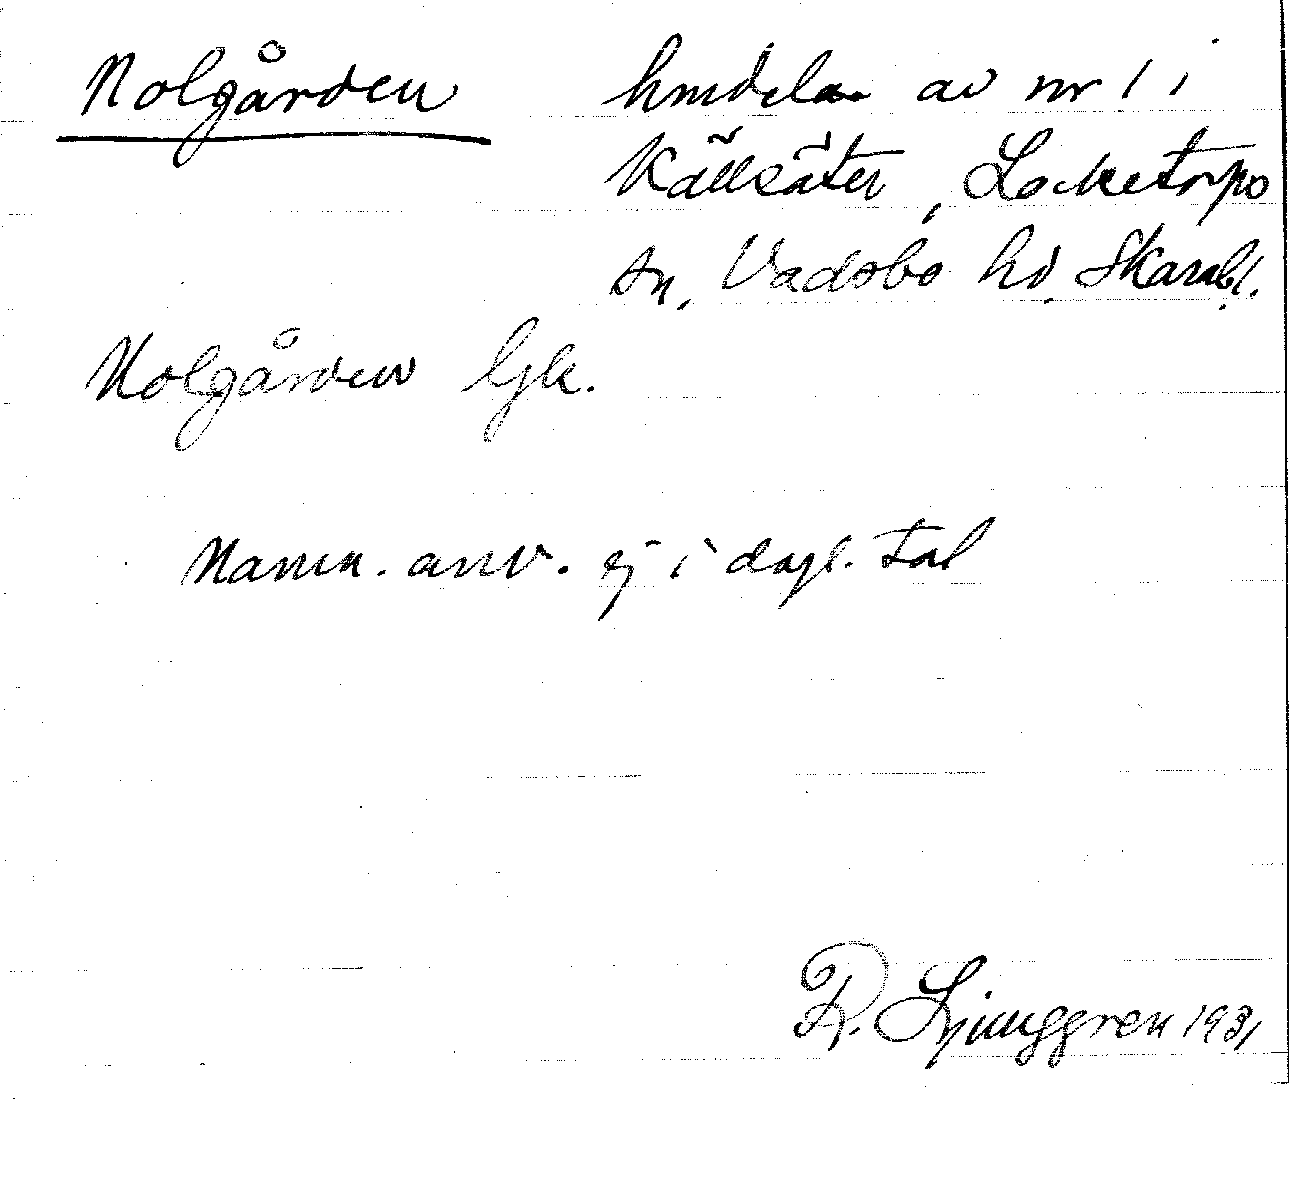 Nolgården hmdelar av nr 1 i
Källsäter, Locketorps
sn, Vadsbo hd. Skarabl.
Nolgården Gk.
Namn. anv. ej i dagl. tal
R. Ljunggren 1931